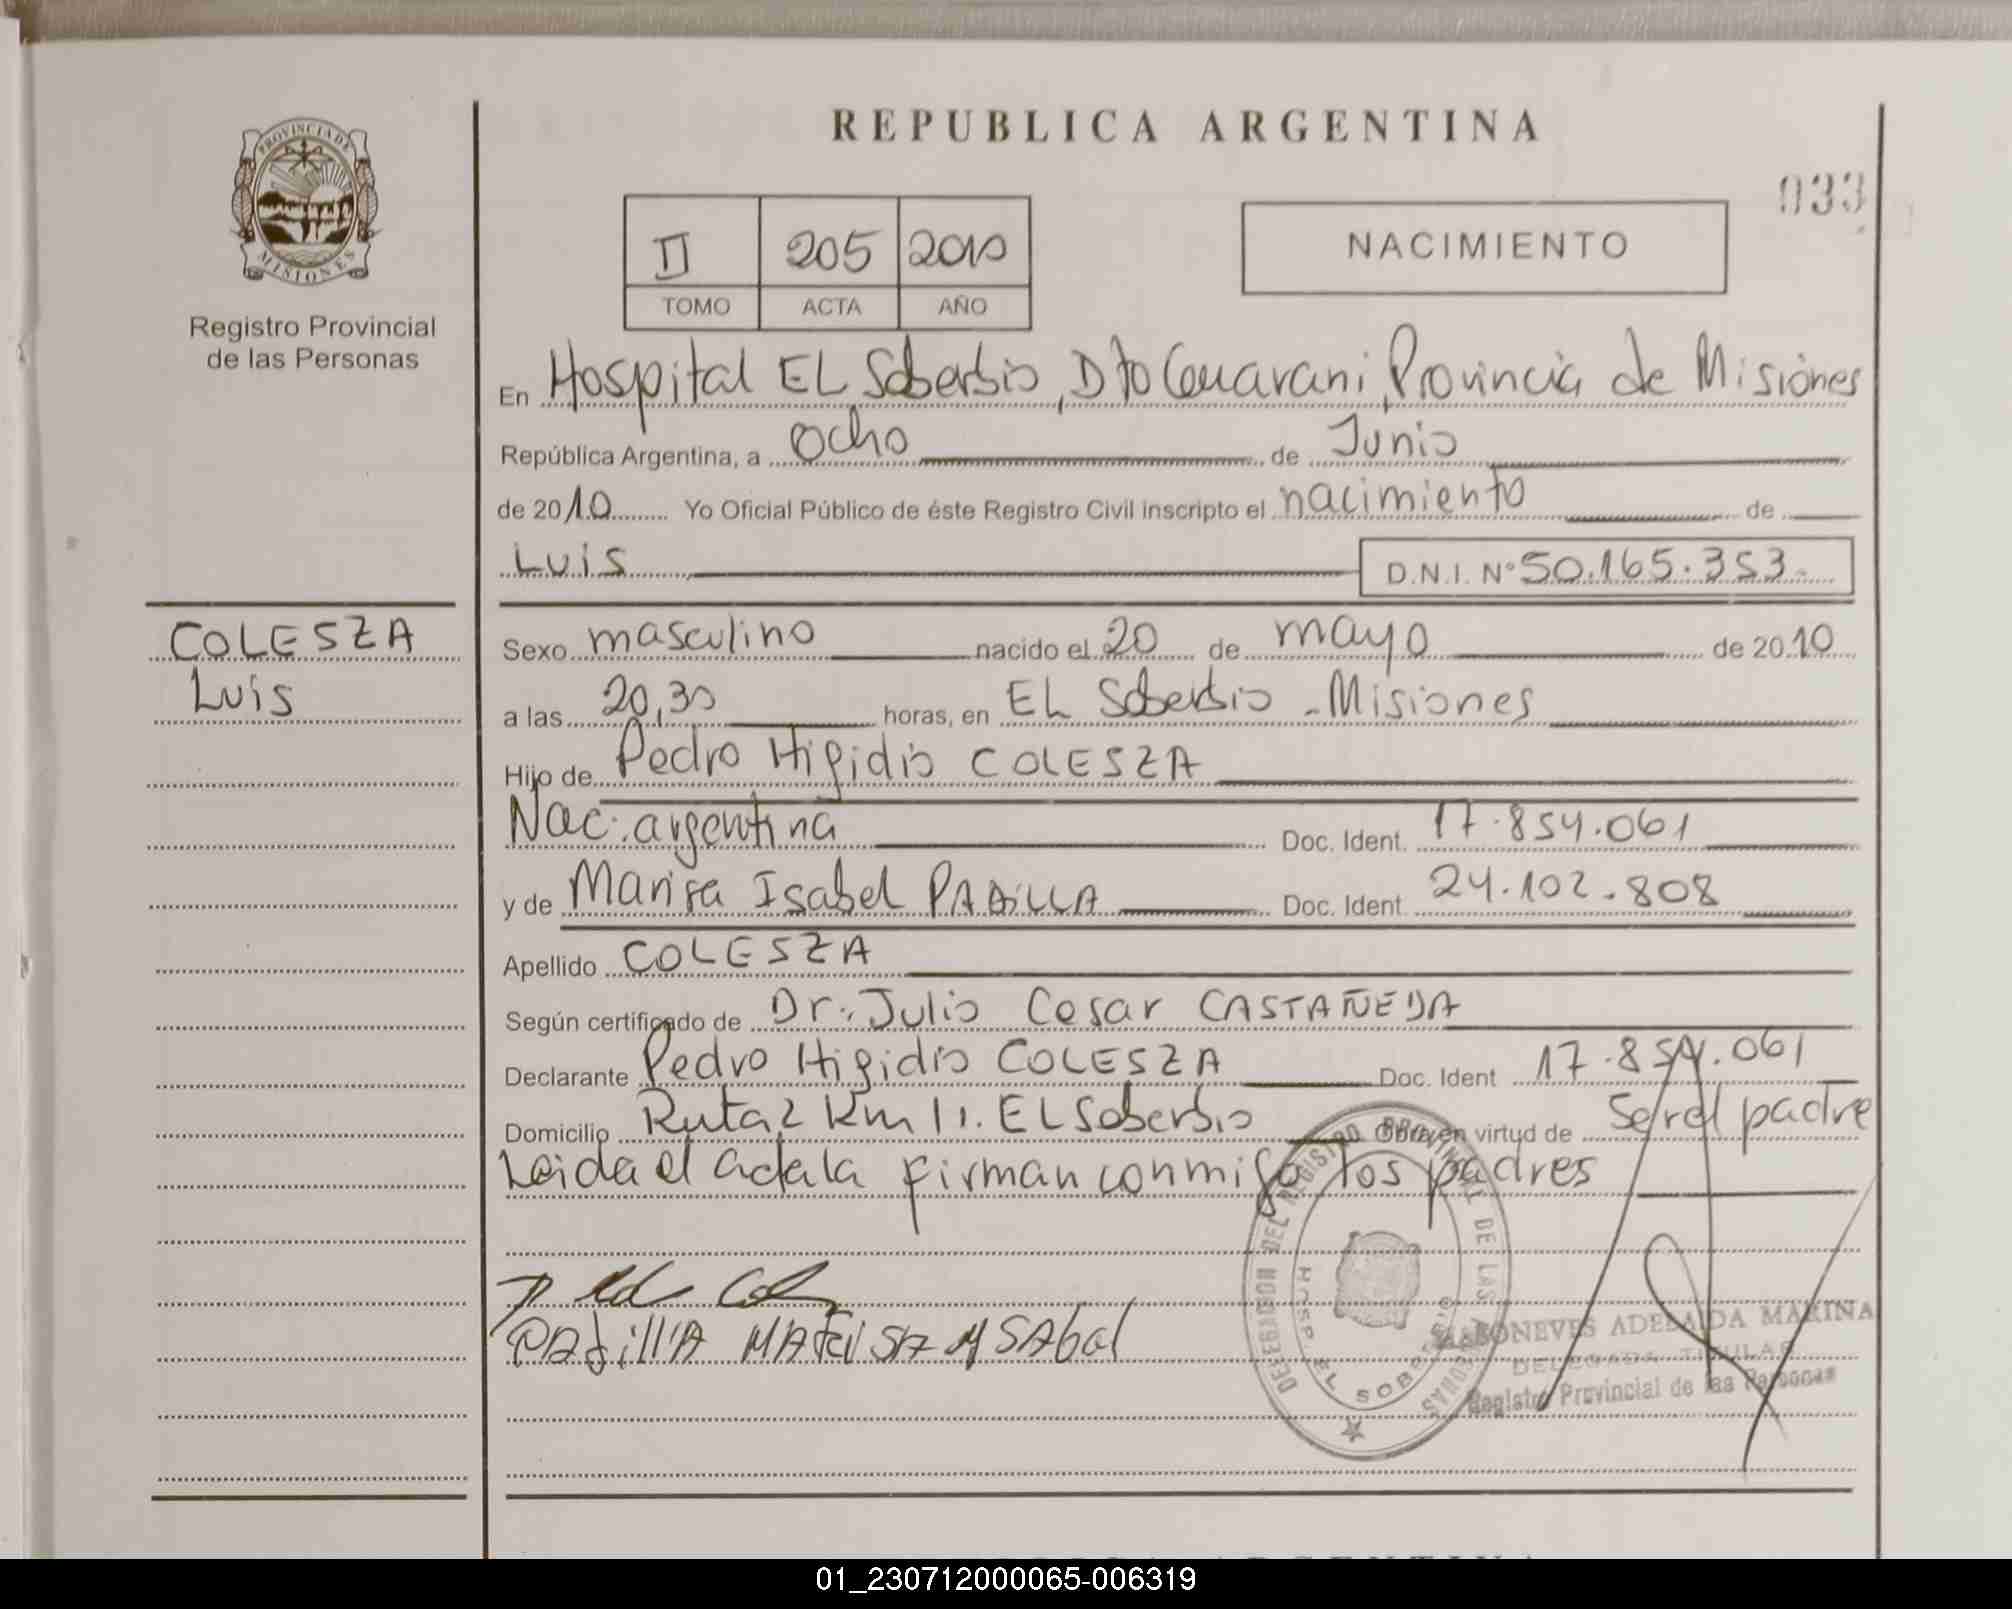 REPUBLICA ARGENTINA
033
PROVINCIA DE
MISIONES
Registro Provincial
de las Personas
II 205 2010
TOMO ACTA AÑO
NACIMIENTO
En Hospital EL Soberbio, Dto Guarani, Provincia de Misiones
República Argentina, a ocho de Junio
de 2010 Yo Oficial Público de éste Registro Civil inscripto el nacimiento de
Luis D.N.I. Nº 50.165.353.
COLESZA
Luis
Sexo masculino nacido el 20 de mayo de 2010
a las 20,30 horas, en EL Soberbio - Misiones
Hijo de Pedro Higidio COLESZA
Nac. argentina Doc. Ident. 17.854.061
y de Marisa Isabel PADILLA Doc. Ident. 24.102.808
Apellido COLESZA
Según certificado de Dr. Julio Cesar CASTAÑEDA
Declarante Pedro Higidio COLESZA Doc. Ident 17.854.061
Domicilio Ruta 2 Km 11. EL Soberbio Obra en virtud de Ser el padre
Leida el acta la firman conmigo los padres
DELEGACION DEL REGISTRO PROVINCIAL DE LAS PERSONAS
HOSP. EL SOBERBIO
PAdillA MARISA ISAbel
ADELAIDA MARINA
DELEGADA TITULAR
Registro Provincial de las Personas
01_230712000065-006319